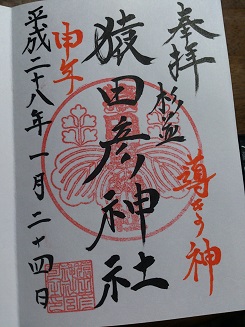 奉拝
杉並
導きの神
猿田彦神社
申年
平成二十八年一月二十四日